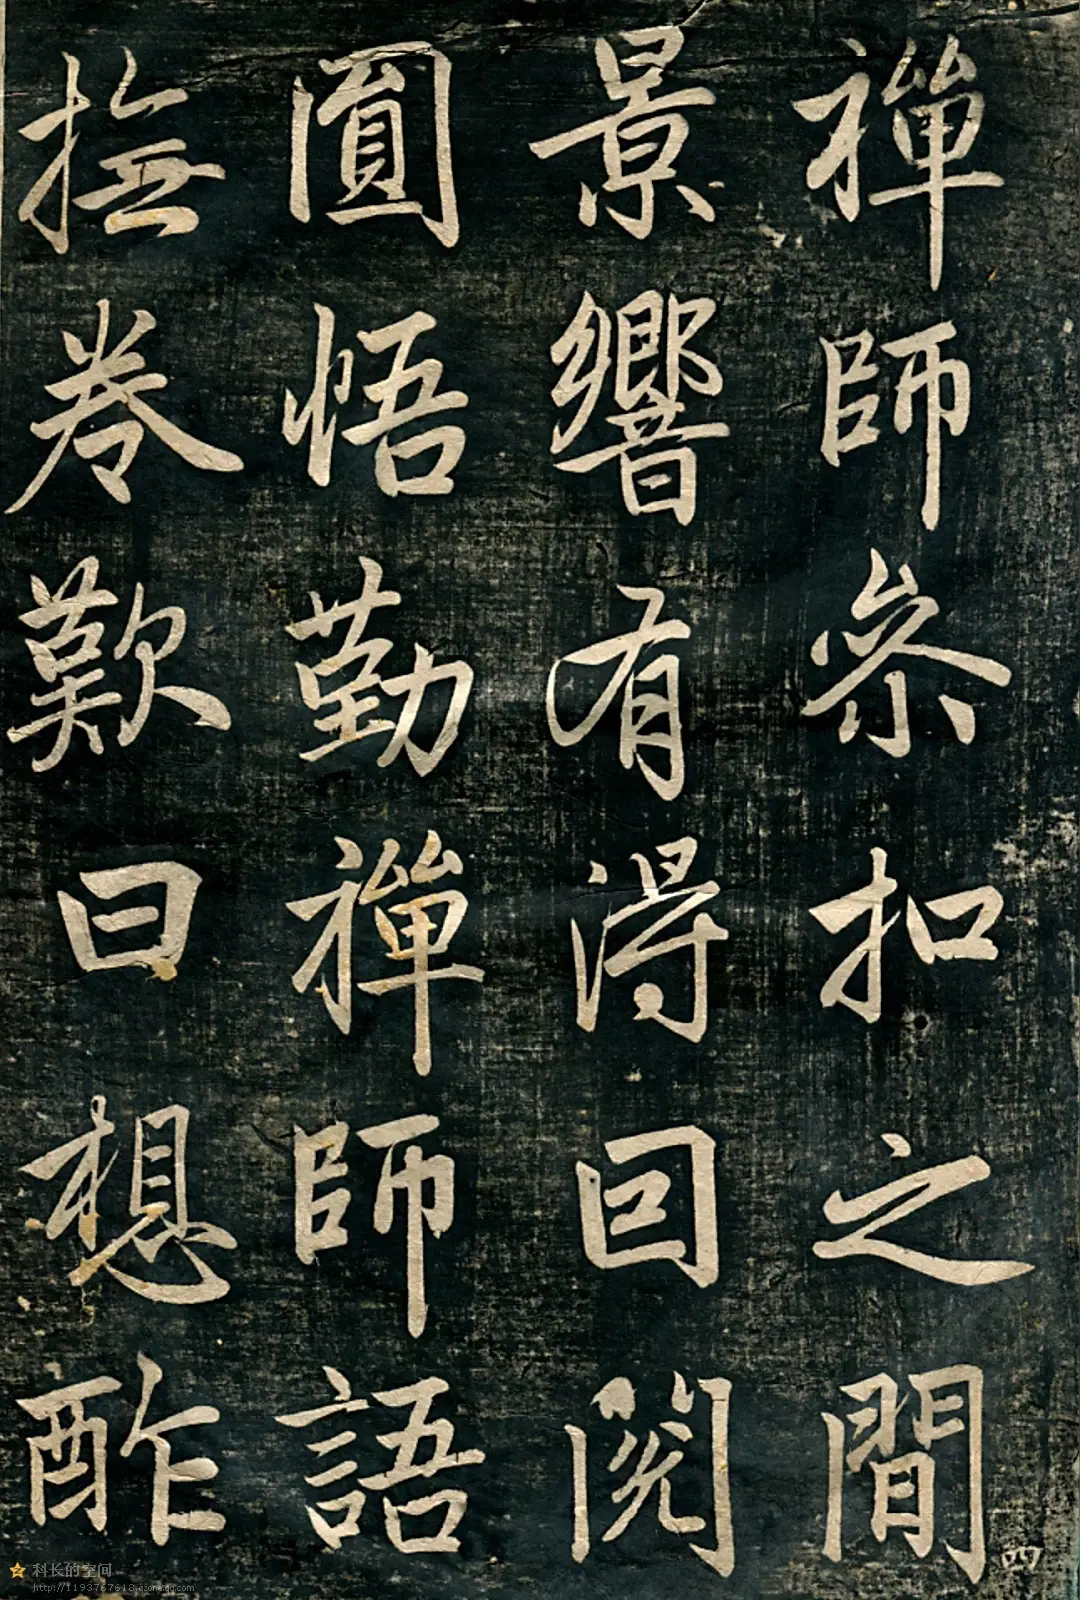 禪師參扣之間
景響有得回閱
圓悟勤禪師語
撫卷歎曰想酢
四
科长的空间
http://1193767618.qzone.qq.com